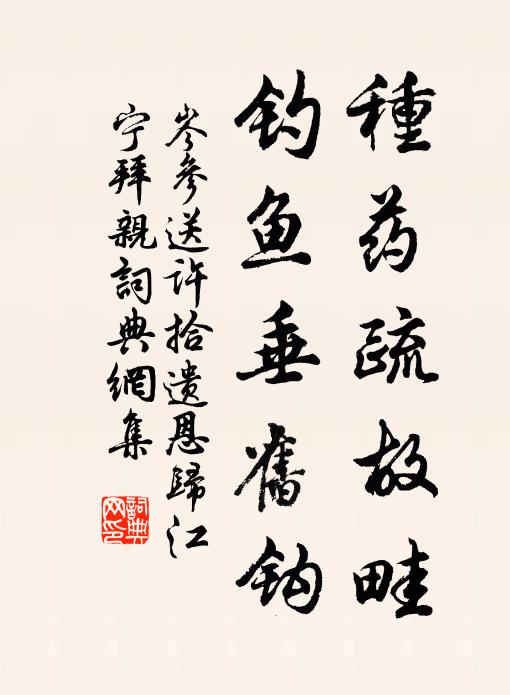 種药疏故畦
钓鱼垂舊钩
岑參送许拾遗恩歸江
宁拜親詞典網集
詞典网印